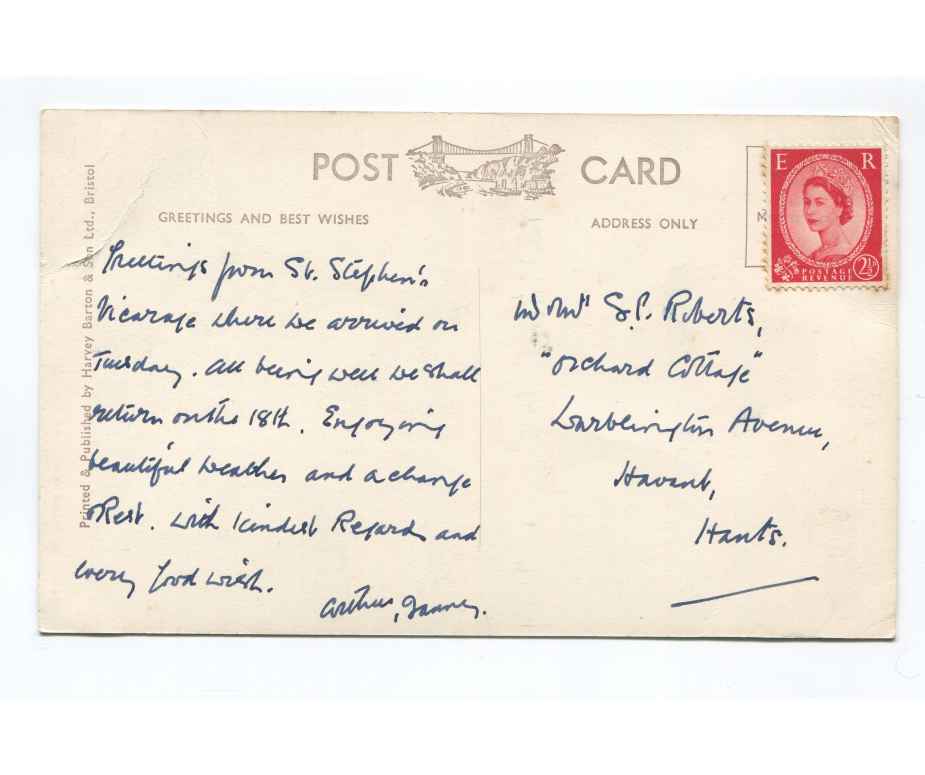 POST CARD
GREETINGS AND BEST WISHES
ADDRESS ONLY
E R
POSTAGE
REVENUE
2½D
Printed & Published by Harvey Barton & Son Ltd., Bristol
Greetings from St. Stephen's
Vicarage where we arrived on
Tuesday. All being well we shall
return on the 18th. Enjoying
beautiful weather and a change
& Rest. With kindest Regards and
every good wish.
Arthur,
"Orchard Cottage"
Warblington Avenue,
Havant,
Hants.
Roberts,